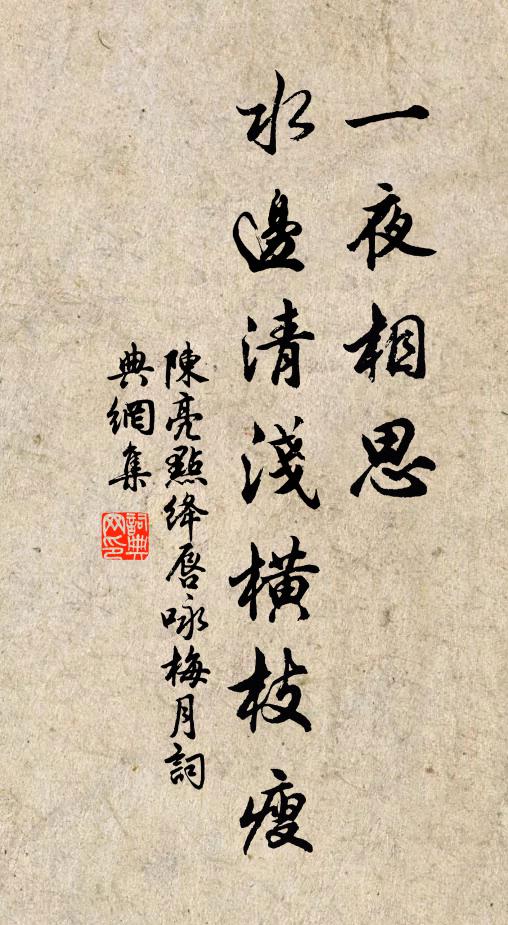 一夜相思
水邊清淺橫枝瘦
陳亮點絳唇咏梅月詞
典網集
詞典網印